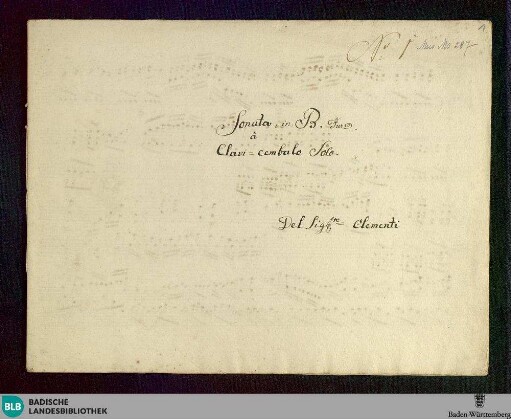 No 1 Mus. Ms. 247
1
Sonata in B. Dur.
à
Clavi=cembalo Solo.
Del Sigre Clementi
BLB BADISCHE
LANDESBIBLIOTHEK
Baden-Württemberg